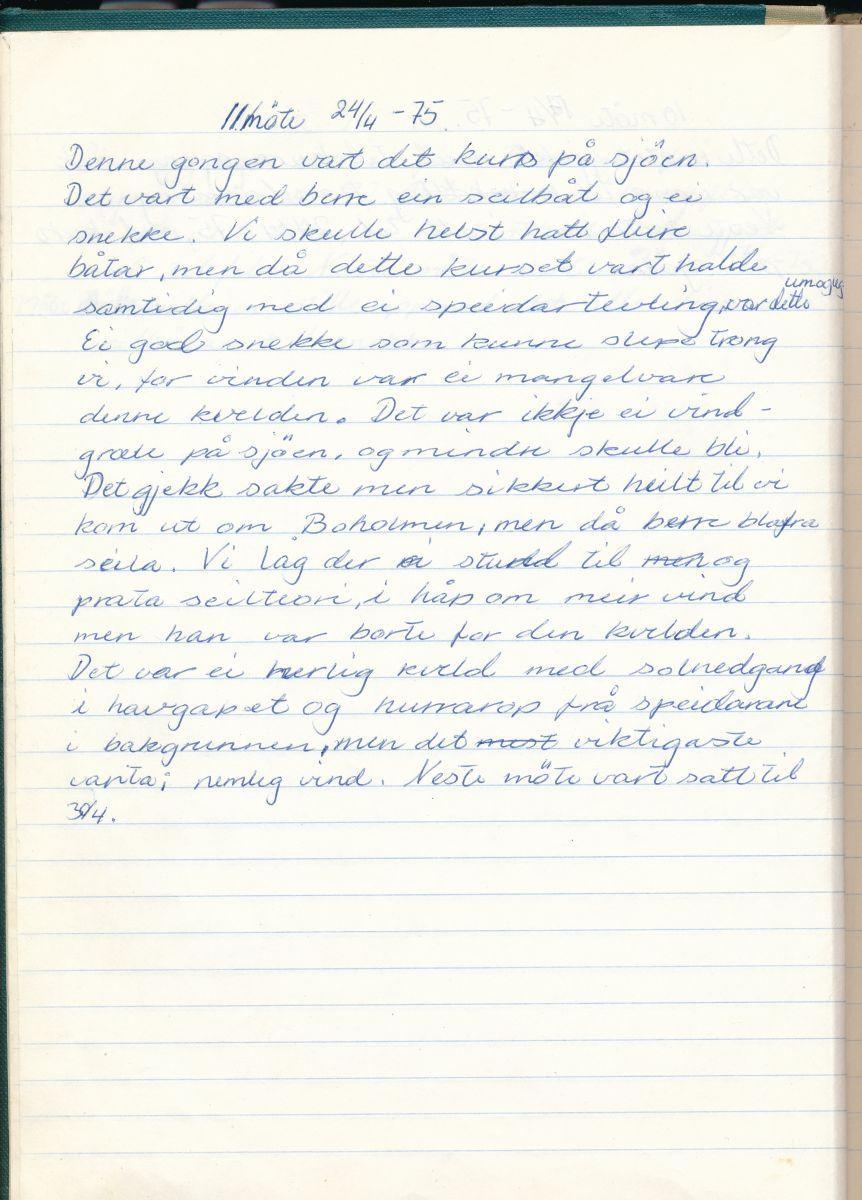 11. möte 24/4 - 75.
Denne gongen vart det kurs på sjöen.
Det vart med berre ein seilbåt og ei
snekke. Vi skulle helst hatt fleire
båtar, men då dette kurset vart halde
samtidig med ei speidartevling, var dette umogleg
Ei god snekke som kunne slepe trong
vi, for vinden var ei mangelvare
denne kvelden. Det var ikkje ei vind-
græle på sjöen, og mindre skulle bli.
Det gjekk sakte men sikkert heilt til vi
kom ut om Boholmen, men då berre blafra
seila. Vi låg der ei stund til men og
prata seilteori, i håp om meir vind
men han var borte for den kvelden.
Det var ei herlig kveld med solnedgang
i havgapet og hurrarop frå speidarane
i bakgrunnen, men det mest viktigaste
vanta; nemleg vind. Neste möte vart satt til
30/4.